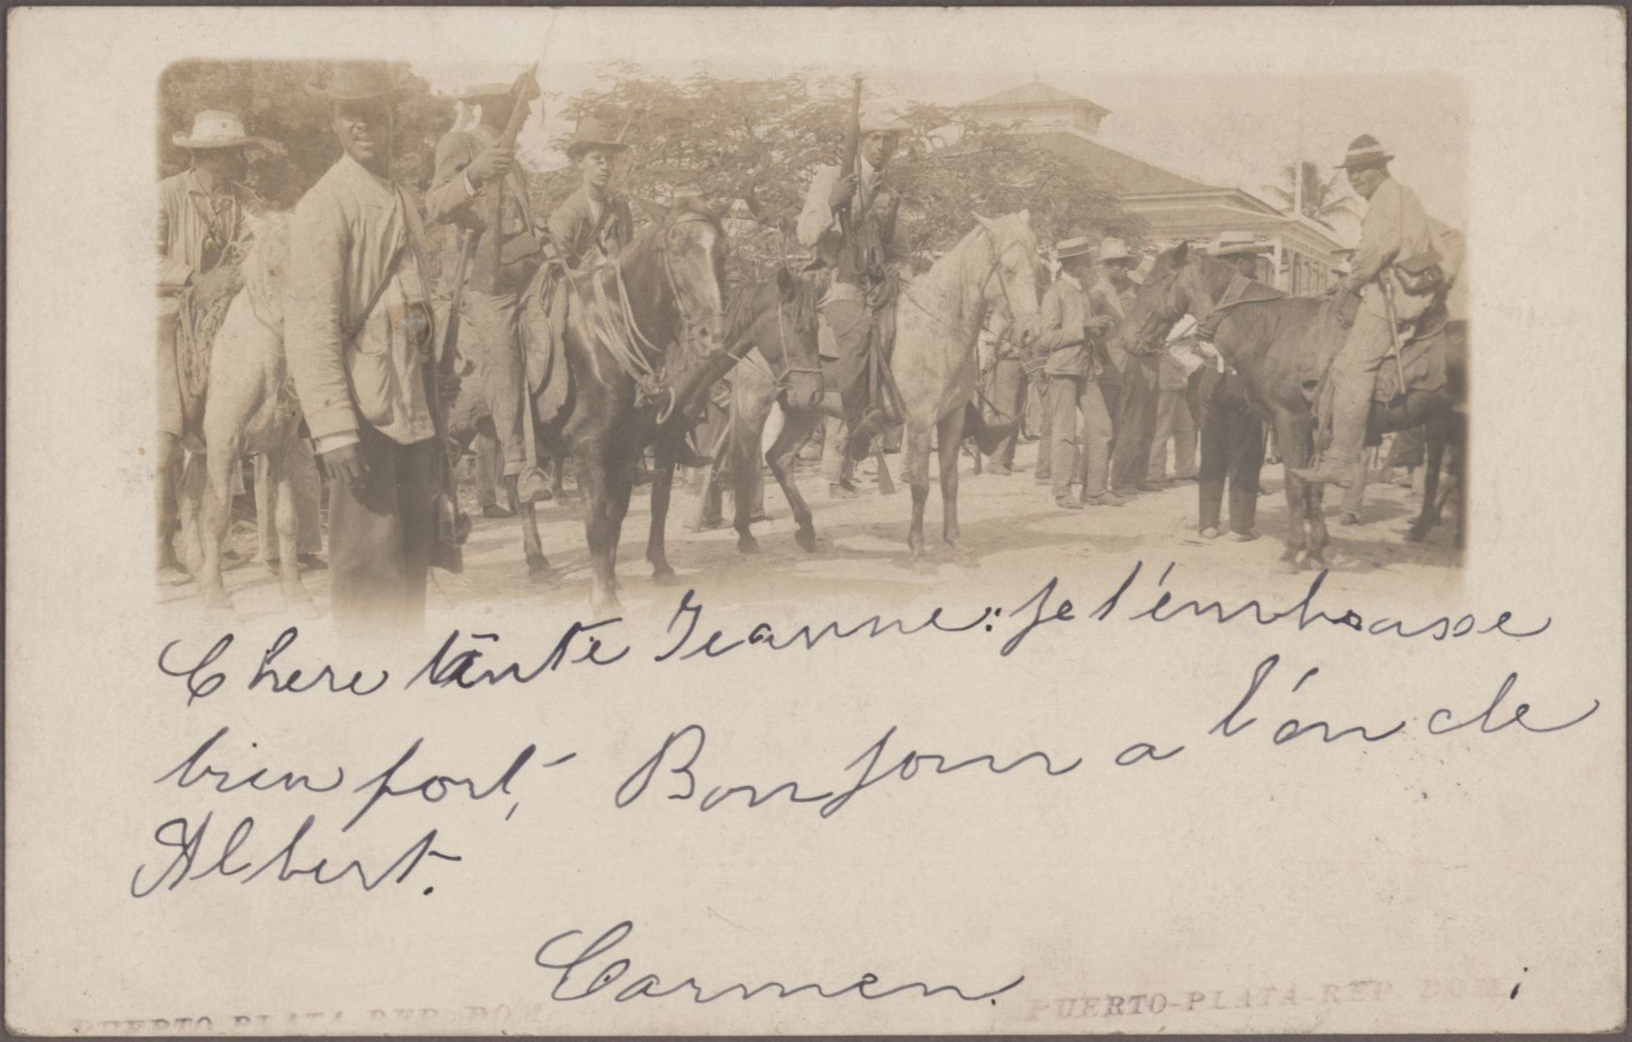 Chere tante Jeanne: Je t'embrasse
bien fort, Bonjour a l'oncle
Albert.
Carmen.
PUERTO-PLATA-REP. DOM.
PUERTO-PLATA-REP. DOM.